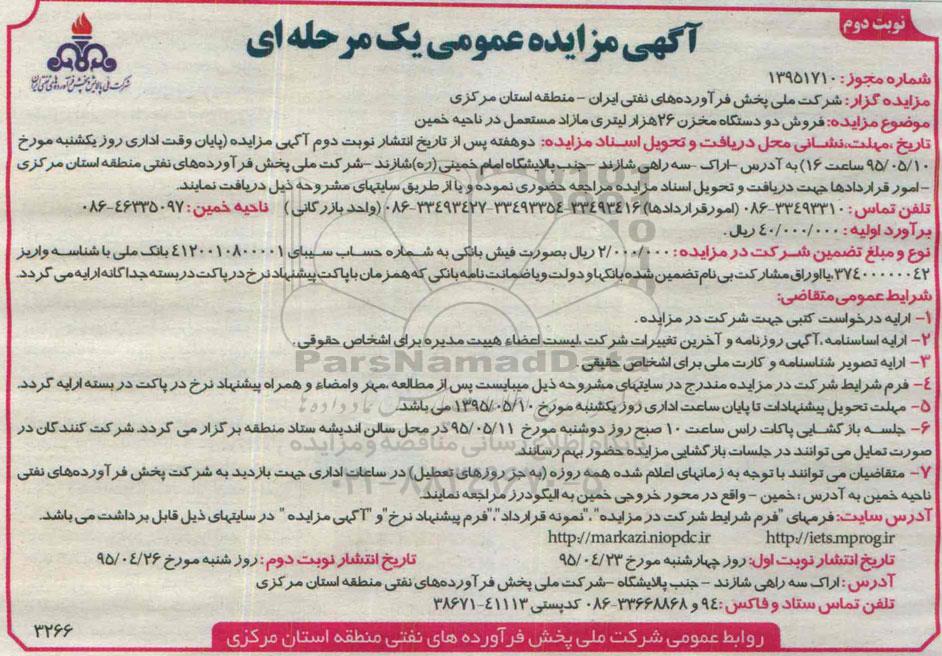 نوبت دوم
آگهی مزایده عمومی یک مرحله ای
شرکت ملی پالایش و پخش فرآورده‌های نفتی ایران
شماره مجوز: ۱۳۹۵۱۷۱۰
مزایده گزار: شرکت ملی پخش فرآورده‌های نفتی ایران – منطقه استان مرکزی
موضوع مزایده: فروش دو دستگاه مخزن ۲۶هزار لیتری مازاد مستعمل در ناحیه خمین
تاریخ ،مهلت،نشانی محل دریافت و تحویل اسناد مزایده: دوهفته پس از تاریخ انتشار نوبت دوم آگهی مزایده (پایان وقت اداری روز یکشنبه مورخ
۹۵/۰۵/۱۰ ساعت ۱۶) به آدرس –اراک –سه راهی شازند –جنب پالایشگاه امام خمینی (ره)شازند –شرکت ملی پخش فرآورده‌های نفتی منطقه استان مرکزی
–امور قراردادها جهت دریافت و تحویل اسناد مزایده مراجعه حضوری نموده و یا از طریق سایتهای مشروحه ذیل دریافت نمایند.
تلفن تماس : ۳۳۴۹۳۳۱۰-۰۸۶ (امورقراردادها) ۳۳۴۹۳۴۱۶-۳۳۴۹۳۳۵۴-۳۳۴۹۳۴۲۷-۰۸۶ (واحد بازرگانی ) ناحیه خمین : ۴۶۳۳۵۰۹۷-۰۸۶
برآورد اولیه : ۴۰/۰۰۰/۰۰۰ ریال.
نوع و مبلغ تضمین شرکت در مزایده : ۲/۰۰۰/۰۰۰ ریال بصورت فیش بانکی به شماره حساب سیبای ۴۱۲۰۰۱۰۸۰۰۰۰۱ بانک ملی با شناسه واریز
۳۷۴۰۰۰۰۰۰۴۲،یااوراق مشارکت بی نام تضمین شده بانکها و دولت و یاضمانت نامه بانکی که همزمان با پاکت پیشنهاد نرخ در پاکت در بسته جداگانه ارایه می گردد.
شرایط عمومی متقاضی:
۱– ارایه درخواست کتبی جهت شرکت در مزایده .
۲– ارایه اساسنامه ،آگهی روزنامه و آخرین تغییرات شرکت ،لیست اعضاء هییت مدیره برای اشخاص حقوقی .
۳– ارایه تصویر شناسنامه و کارت ملی برای اشخاص حقیقی .
۴– فرم شرایط شرکت در مزایده مندرج در سایتهای مشروحه ذیل میبایست پس از مطالعه ،مهر وامضاء و همراه پیشنهاد نرخ در پاکت در بسته ارایه گردد.
۵– مهلت تحویل پیشنهادات تا پایان ساعت اداری روز یکشنبه مورخ ۱۳۹۵/۰۵/۱۰ می باشد.
۶– جلسه بازگشایی پاکات راس ساعت ۱۰ صبح روز دوشنبه مورخ ۹۵/۰۵/۱۱ در محل سالن اندیشه ستاد منطقه برگزار می گردد. شرکت کنندگان در
صورت تمایل می توانند در جلسات بازگشایی مزایده حضور بهم رسانند.
۷– متقاضیان می توانند با توجه به زمانهای اعلام شده همه روزه (به جز روزهای تعطیل) در ساعات اداری جهت بازدید به شرکت پخش فرآورده‌های نفتی
ناحیه خمین به آدرس : خمین – واقع در محور خروجی خمین به الیگودرز مراجعه نمایند.
آدرس سایت: فرمهای "فرم شرایط شرکت در مزایده"،"نمونه قرارداد"،"فرم پیشنهاد نرخ"و "آگهی مزایده " در سایتهای ذیل قابل برداشت می باشد.
http://iets.mprog.ir http://markazi.niopdc.ir
تاریخ انتشار نوبت اول: روز چهارشنبه مورخ ۹۵/۰۴/۲۳ تاریخ انتشار نوبت دوم : روز شنبه مورخ ۹۵/۰۴/۲۶
آدرس : اراک سه راهی شازند – جنب پالایشگاه –شرکت ملی پخش فرآورده‌های نفتی منطقه استان مرکزی
تلفن تماس ستاد و فاکس : ۹۴ و ۳۳۶۶۸۸۶۸-۰۸۶ کدپستی ۴۱۱۱۳-۳۸۶۷۱
روابط عمومی شرکت ملی پخش فرآورده های نفتی منطقه استان مرکزی
۳۲۶۶
ParsNamadData
پایگاه اطلاع رسانی مناقصه و مزایده
۰۲۱-۸۸۳۴۹۶۷۰-۵